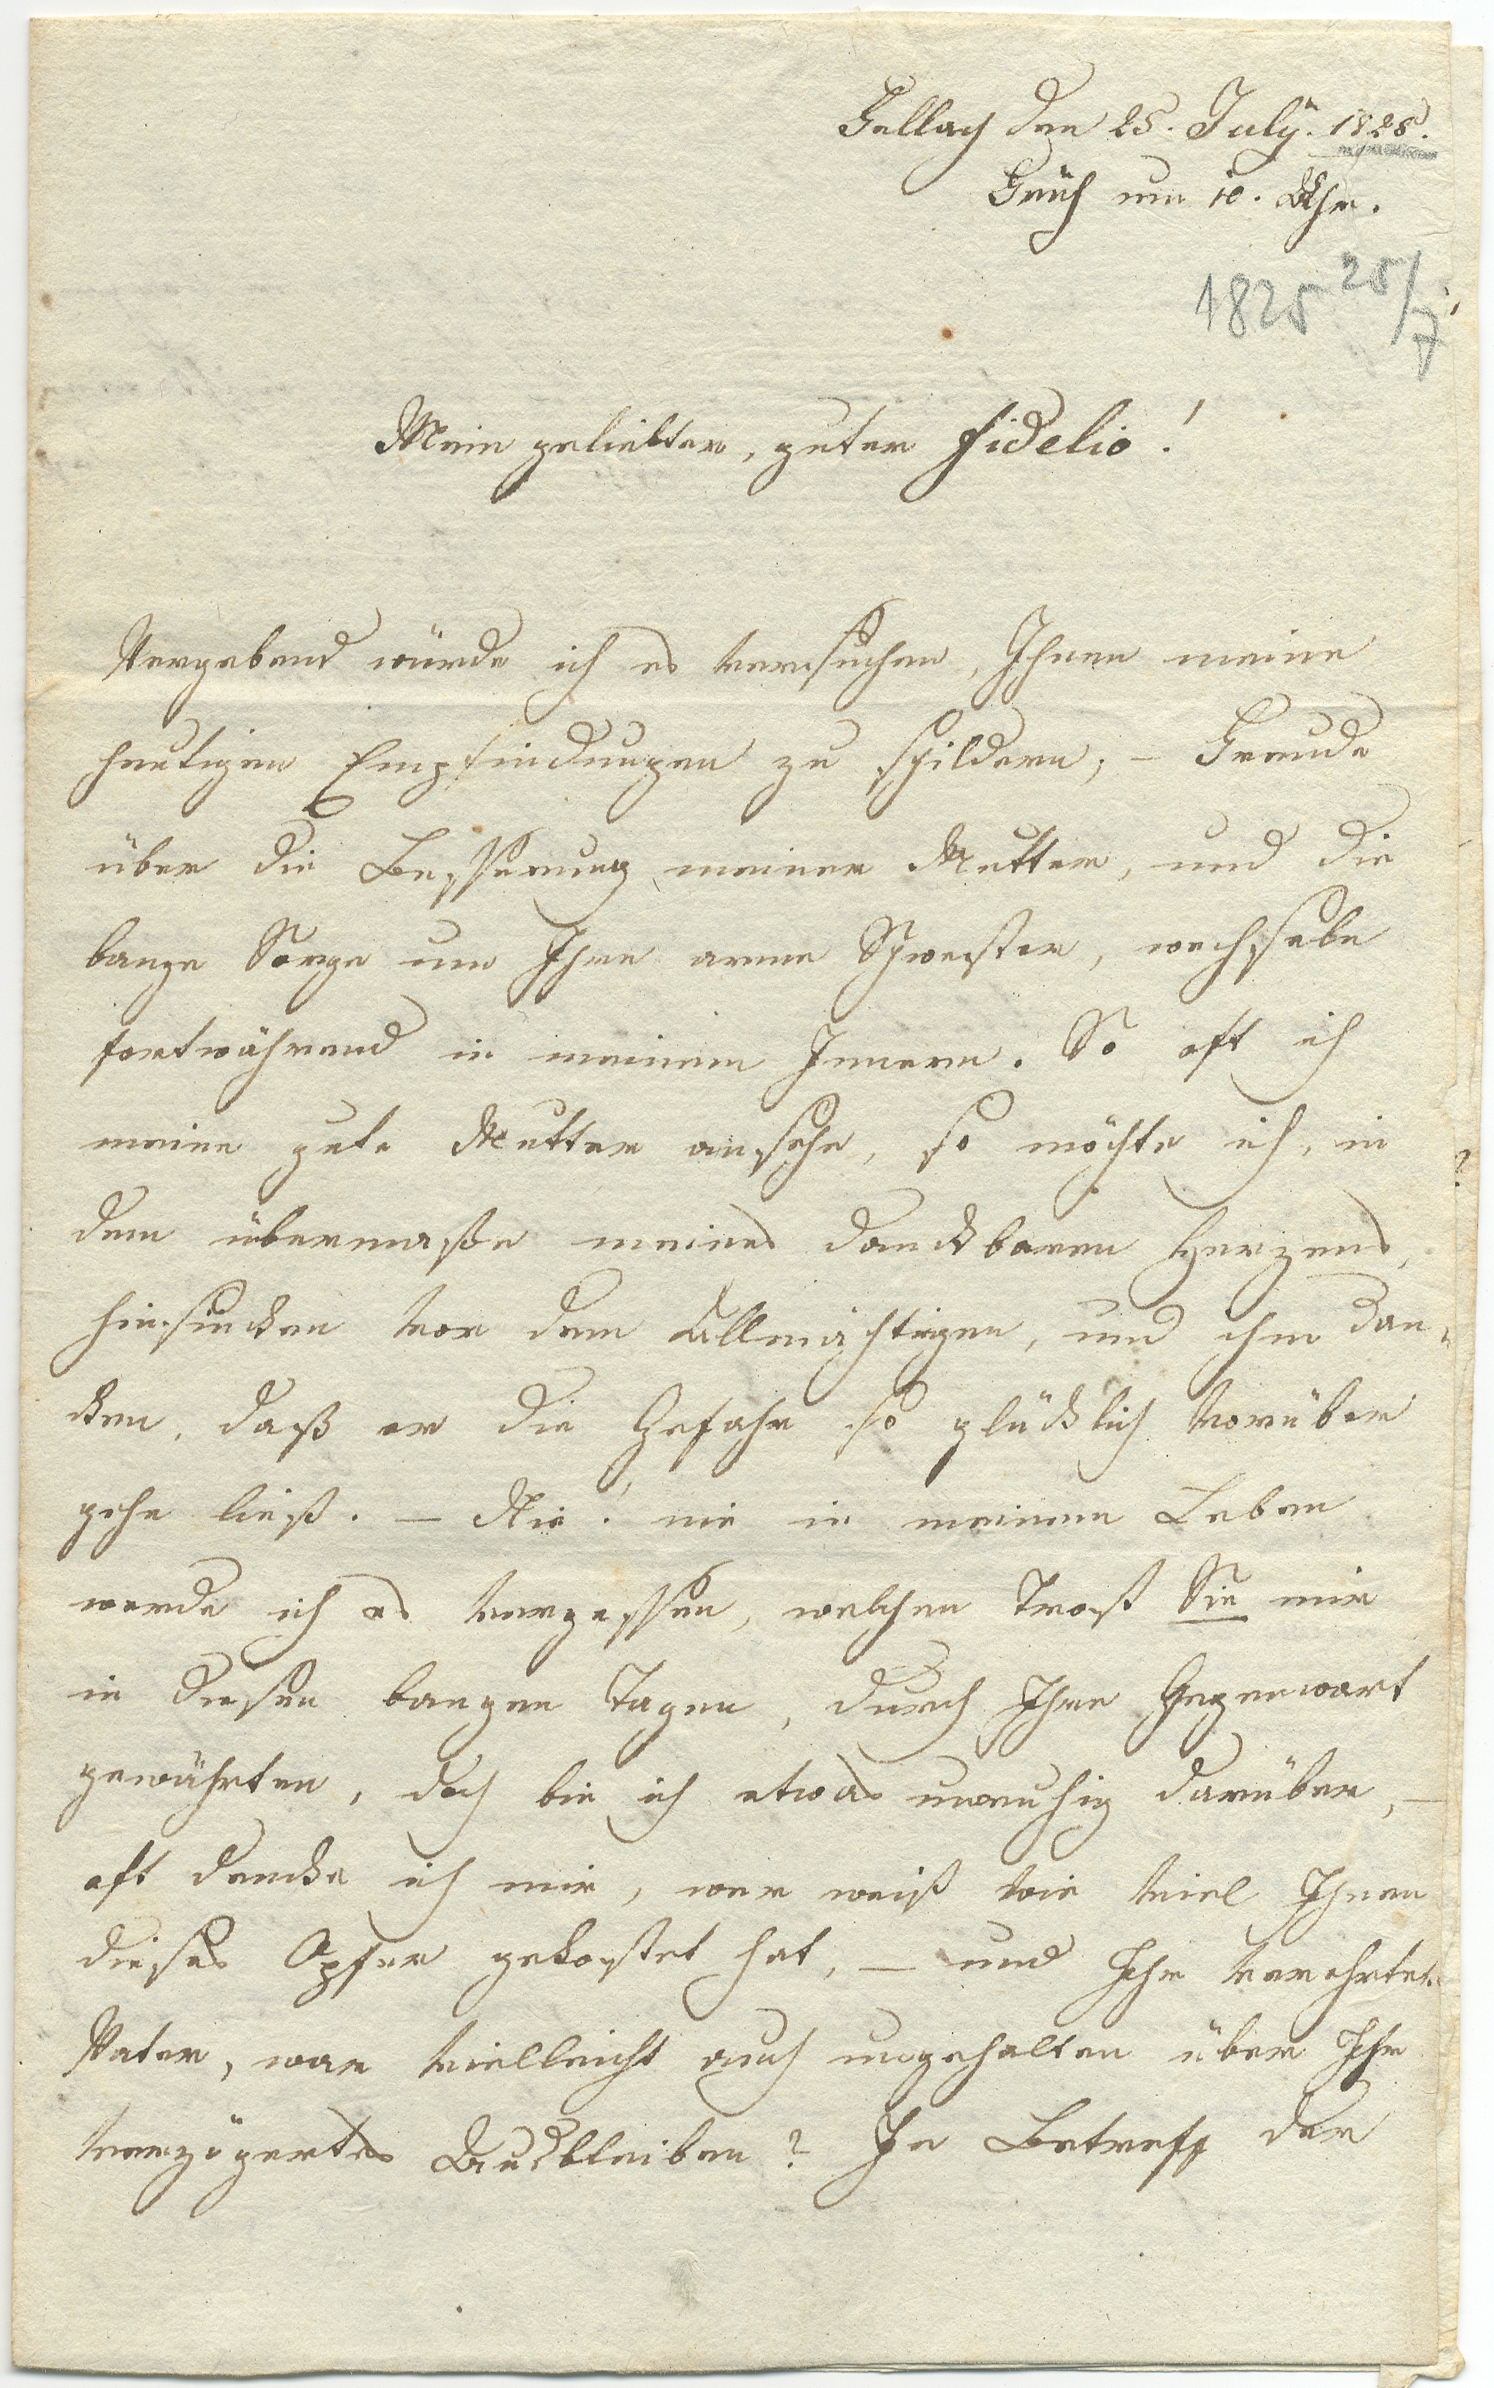 Gallach den 25. July. 1825.
Früh um 10. Uhr.
1825 25/7
Mein geliebter, guter Fidelio!
Vergebens würde ich es versuchen, Ihnen meine
heutigen Empfindungen zu schildern; – Freude
über die Besserung meiner Mutter, und die
bange Sorge um Ihre arme Schwester, wechseln
fortwährend in meinem Innern. So oft ich
meine gute Mutter ansehe, so möchte ich, in
dem übermaße meines danckbaren Herzens,
hinsincken vor dem Allmächtigen, und ihm dan-
cken, daß er die Gefahr so glücklich vorüber
gehn ließ. – Nie! nie in meinem Leben
werde ich es vergessen, welchen Trost Sie mir
in diesen bangen Tagen, durch Ihre Gegenwart
gewährten, doch bin ich etwas unruhig darüber, –
oft dencke ich mir, wer weiß wie viel Ihnen
dieses Opfer gekostet hat, – und Ihr verehrter
Vater, war vielleicht auch ungehalten über Ihr
verzögertes Ausbleiben? In Betreff der